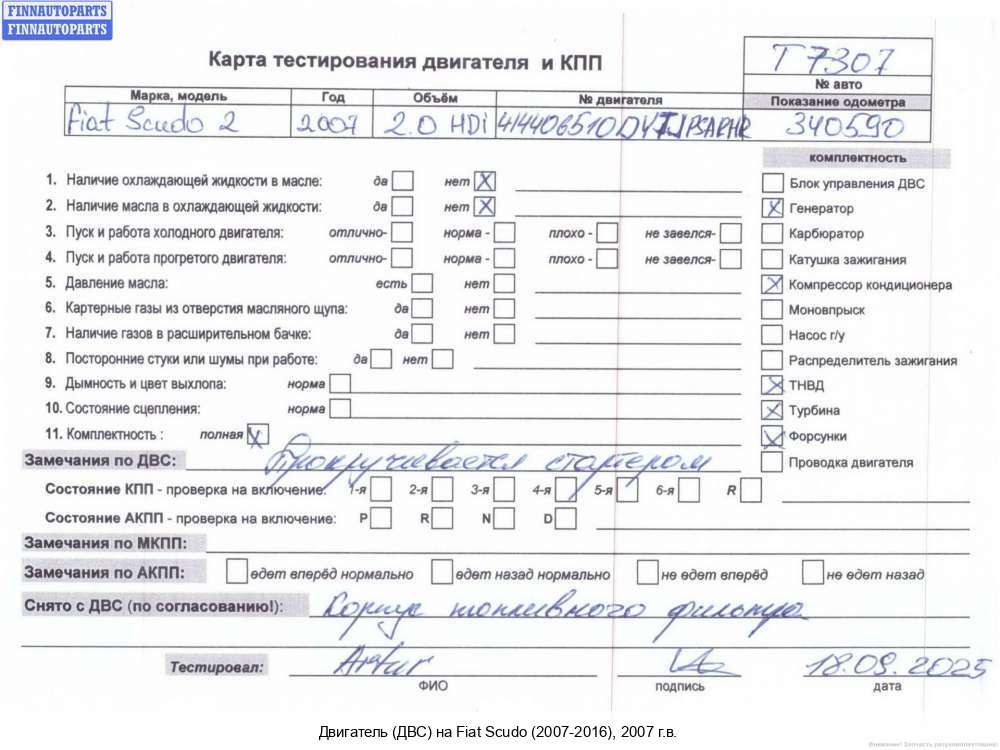 FINNAUTOPARTS
FINNAUTOPARTS
Карта тестирования двигателя и КПП
T 7307
№ авто
Марка, модель Год Объём № двигателя Показание одометра
Fiat Scudo 2 2007 2.0 HDi 340590
комплектность
1. Наличие охлаждающей жидкости в масле: да нет X
Блок управления ДВС
2. Наличие масла в охлаждающей жидкости: да нет X
X Генератор
3. Пуск и работа холодного двигателя: отлично- норма - плохо - не завелся-
Карбюратор
4. Пуск и работа прогретого двигателя: отлично- норма - плохо - не завелся-
Катушка зажигания
5. Давление масла: есть нет
X Компрессор кондиционера
6. Картерные газы из отверстия масляного щупа: да нет
Моновпрыск
7. Наличие газов в расширительном бачке: да нет
Насос г/у
8. Посторонние стуки или шумы при работе: да нет
Распределитель зажигания
9. Дымность и цвет выхлопа: норма
X ТНВД
10. Состояние сцепления: норма
X Турбина
11. Комплектность : полная X
X Форсунки
Замечания по ДВС: Прокручивается стартером
Проводка двигателя
Состояние КПП - проверка на включение: 1-я 2-я 3-я 4-я 5-я 6-я R
Состояние АКПП - проверка на включение: P R N D
Замечания по МКПП:
Замечания по АКПП: едет вперёд нормально едет назад нормально не едет вперёд не едет назад
Снято с ДВС (по согласованию!): Корпус топливного фильтра
Тестировал: Artur 18.09.2025
ФИО подпись дата
Двигатель (ДВС) на Fiat Scudo (2007-2016), 2007 г.в.
Внимание! Запчасть разукомплектована!